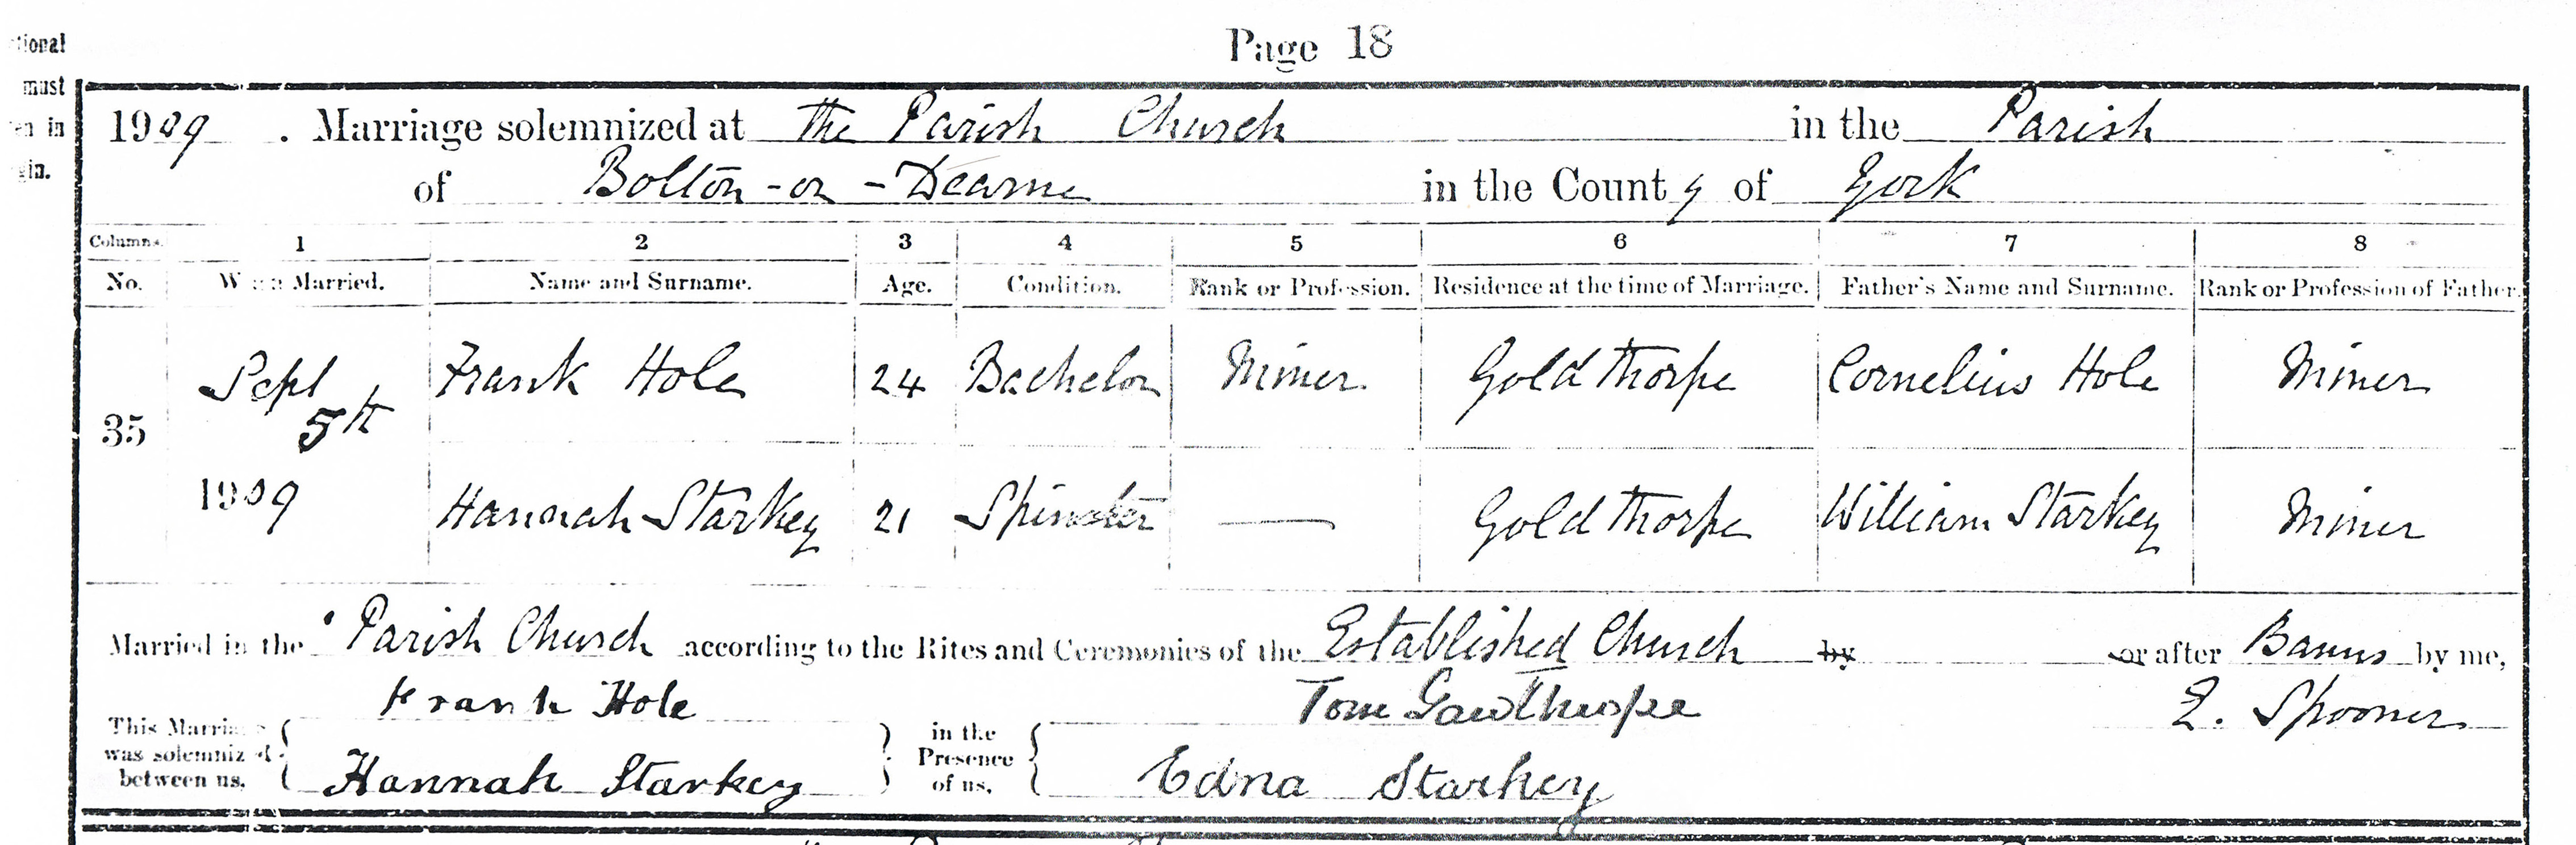 Page 18
tional
must
en in
gin.
1909. Marriage solemnized at the Parish Church in the Parish
of Bolton-on-Dearne in the County of York
Columns. 1 2 3 4 5 6 7 8
No. When Married. Name and Surname. Age. Condition. Rank or Profession. Residence at the time of Marriage. Father's Name and Surname. Rank or Profession of Father.
35 Sept 5th 1909
Frank Hole 24 Bachelor Miner Goldthorpe Cornelius Hole Miner
Hannah Starkey 21 Spinster — Goldthorpe William Starkey Miner
Married in the Parish Church according to the Rites and Ceremonies of the Established Church by or after Banns by me,
This Marriage was solemnized between us, Frank Hole Hannah Starkey in the Presence of us, Tom Gawthorpe Edna Starkey
E. Spooner